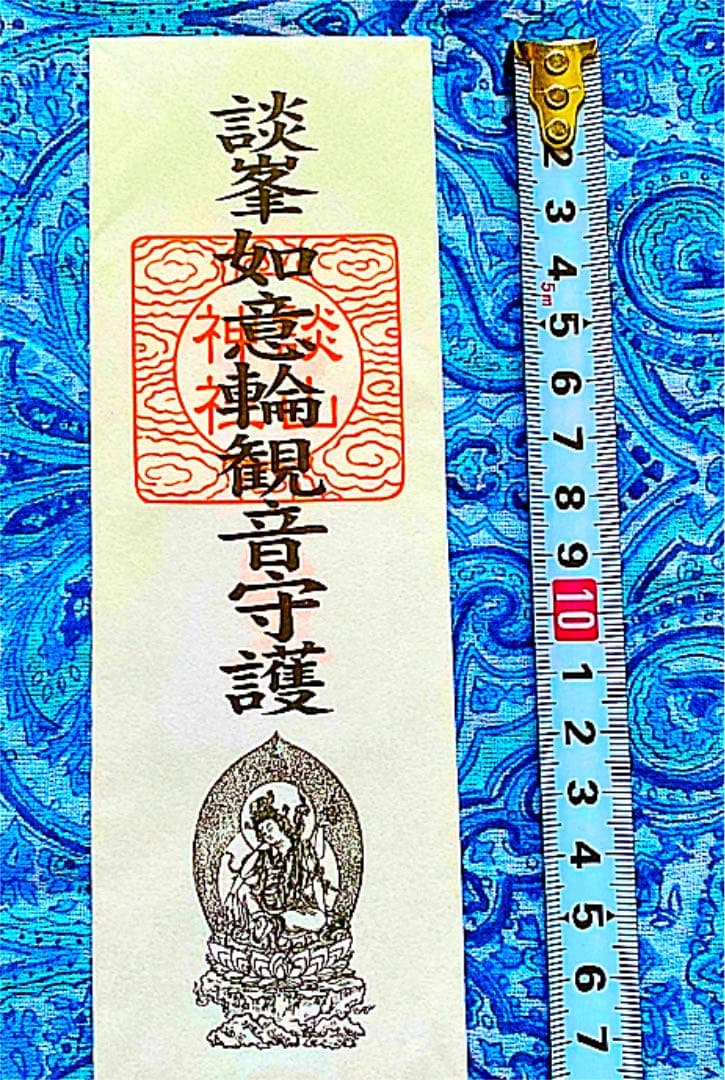 談峯如意輪観音守護
談山
神社
2
3
4
5m
5
6
7
8
9
10
1
2
3
4
5
6
7